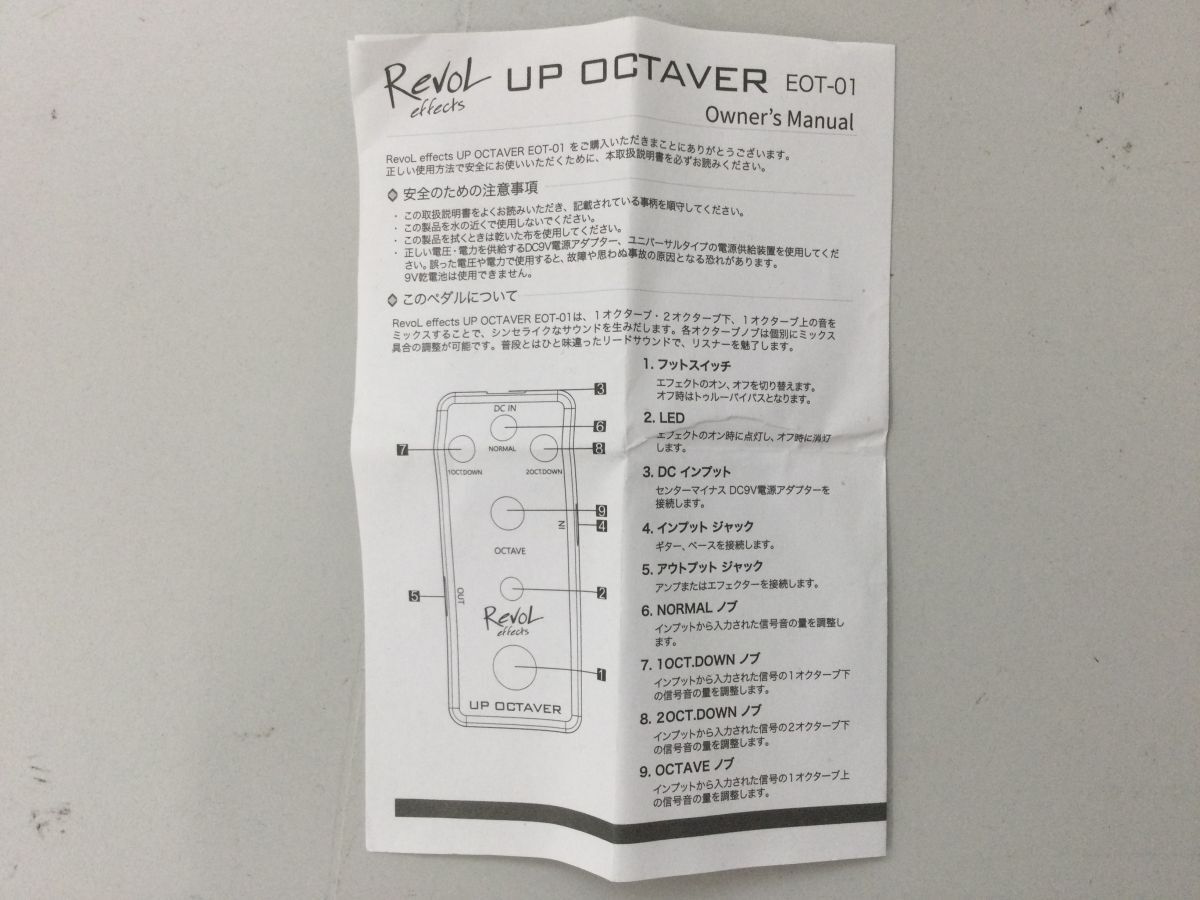 RevoL effects UP OCTAVER EOT-01
Owner's Manual
RevoL effects UP OCTAVER EOT-01 をご購入いただきまことにありがとうございます。
正しい使用方法で安全にお使いいただくために、本取扱説明書を必ずお読みください。
安全のための注意事項
・ この取扱説明書をよくお読みいただき、記載されている事柄を順守してください。
・ この製品を水の近くで使用しないでください。
・ この製品を拭くときは乾いた布を使用してください。
・ 正しい電圧・電力を供給するDC9V電源アダプター、ユニバーサルタイプの電源供給装置を使用してくだ
さい。誤った電圧や電力で使用すると、故障や思わぬ事故の原因となる恐れがあります。
9V乾電池は使用できません。
このペダルについて
RevoL effects UP OCTAVER EOT-01は、1オクターブ・2オクターブ下、1オクターブ上の音を
ミックスすることで、シンセライクなサウンドを生みだします。各オクターブノブは個別にミックス
具合の調整が可能です。普段とはひと味違ったリードサウンドで、リスナーを魅了します。
3
DC IN
6
7
NORMAL
8
1OCT.DOWN
2OCT.DOWN
9
IN
4
OCTAVE
5
OUT
2
RevoL
effects
1
UP OCTAVER
1. フットスイッチ
エフェクトのオン、オフを切り替えます。
オフ時はトゥルーバイパスとなります。
2. LED
エフェクトのオン時に点灯し、オフ時に消灯
します。
3. DC インプット
センターマイナス DC9V電源アダプターを
接続します。
4. インプット ジャック
ギター、ベースを接続します。
5. アウトプット ジャック
アンプまたはエフェクターを接続します。
6. NORMAL ノブ
インプットから入力された信号音の量を調整し
ます。
7. 1OCT.DOWN ノブ
インプットから入力された信号の1オクターブ下
の信号音の量を調整します。
8. 2OCT.DOWN ノブ
インプットから入力された信号の2オクターブ下
の信号音の量を調整します。
9. OCTAVE ノブ
インプットから入力された信号の1オクターブ上
の信号音の量を調整します。